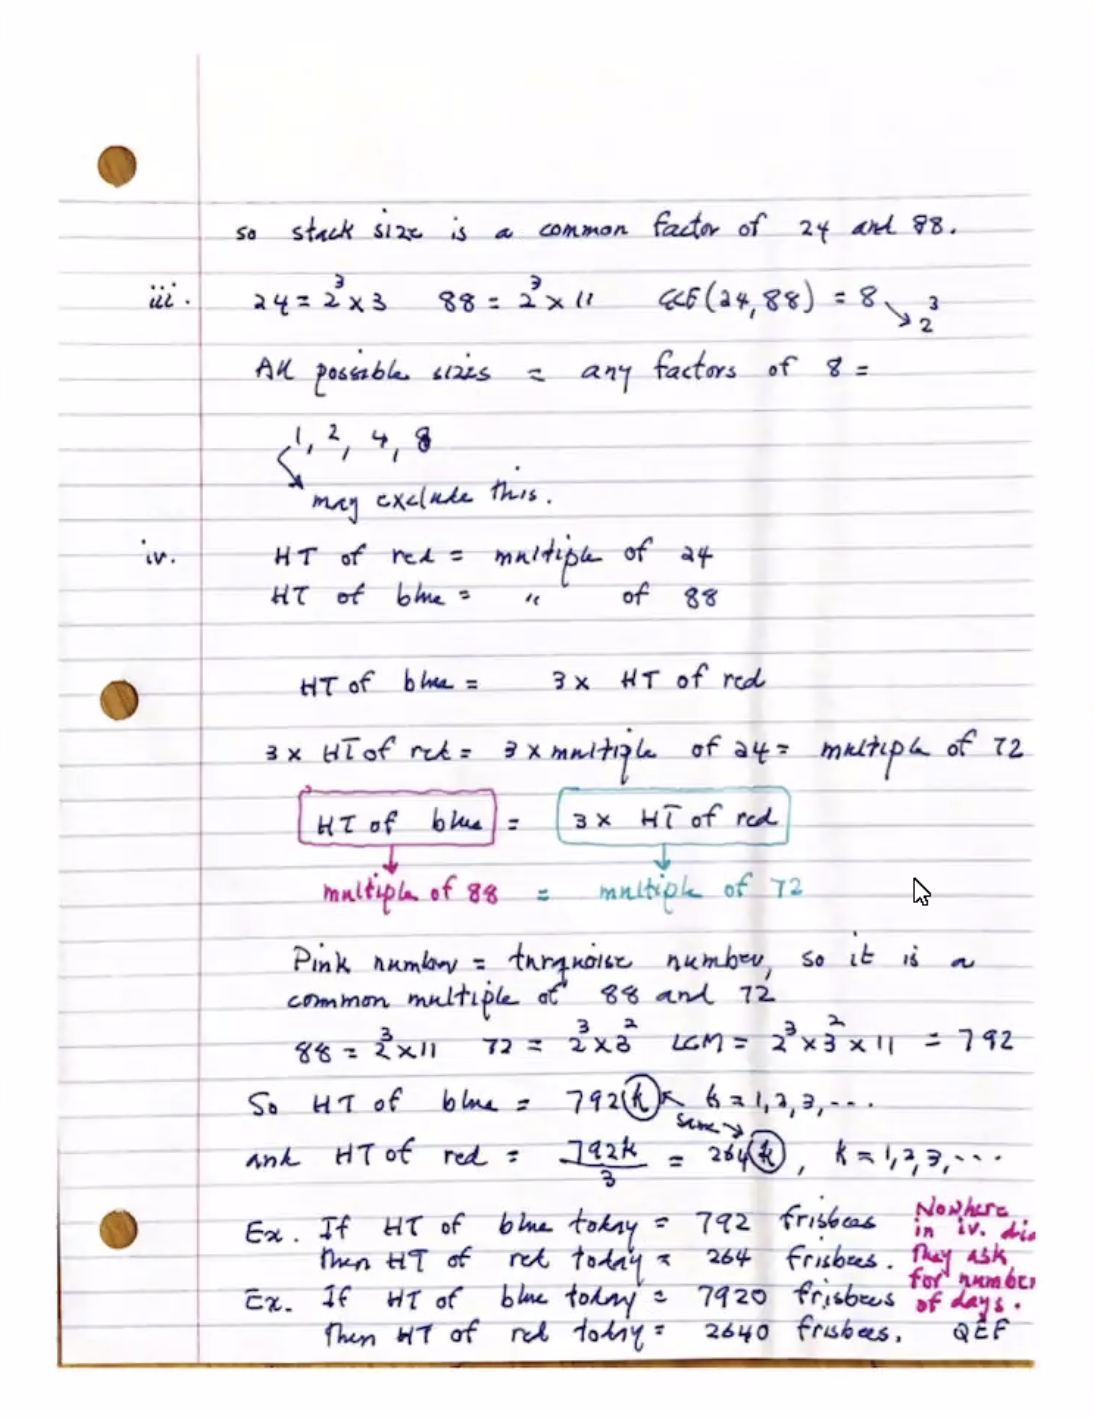 so stack size is a common factor of 24 and 88.
iii. 24 = 2³ x 3 88 = 2³ x 11 GCF(24,88) = 8 → 2³
All possible sizes = any factors of 8 =
1, 2, 4, 8
may exclude this.
iv. HT of red = multiple of 24
HT of blue = " of 88
HT of blue = 3 x HT of red
3 x HT of red = 3 x multiple of 24 = multiple of 72
HT of blue = 3 x HT of red
multiple of 88 = multiple of 72
Pink number = turquoise number, so it is a
common multiple of 88 and 72
88 = 2³ x 11 72 = 2³ x 3² LCM = 2³ x 3² x 11 = 792
So HT of blue = 792k k = 1,2,3,...
same
and HT of red = 792k/3 = 264k, k = 1,2,3,...
Ex. If HT of blue today = 792 frisbees
then HT of red today = 264 frisbees.
Ex. If HT of blue today = 7920 frisbees
then HT of red today = 2640 frisbees. QEF
Nowhere
in iv. did
they ask
for number
of days.